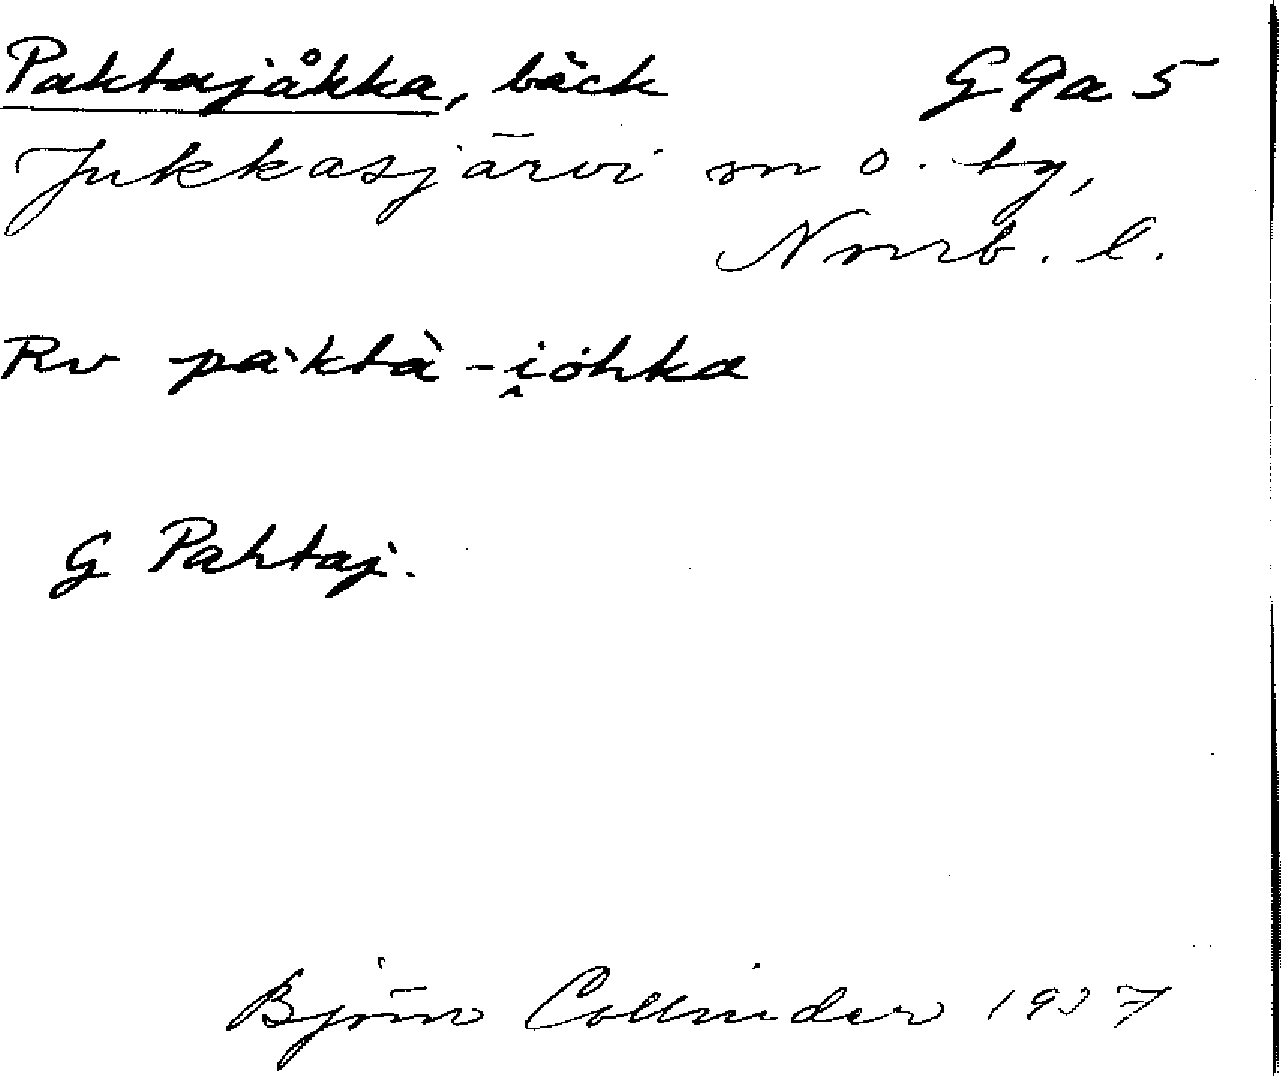 Paktajåkka, bäck G9a5
Jukkasjärvi sn o. tg,
Norrb. l.
Rv pàktà-i̭òhka
G Pahtaj.
Björn Collinder 1937